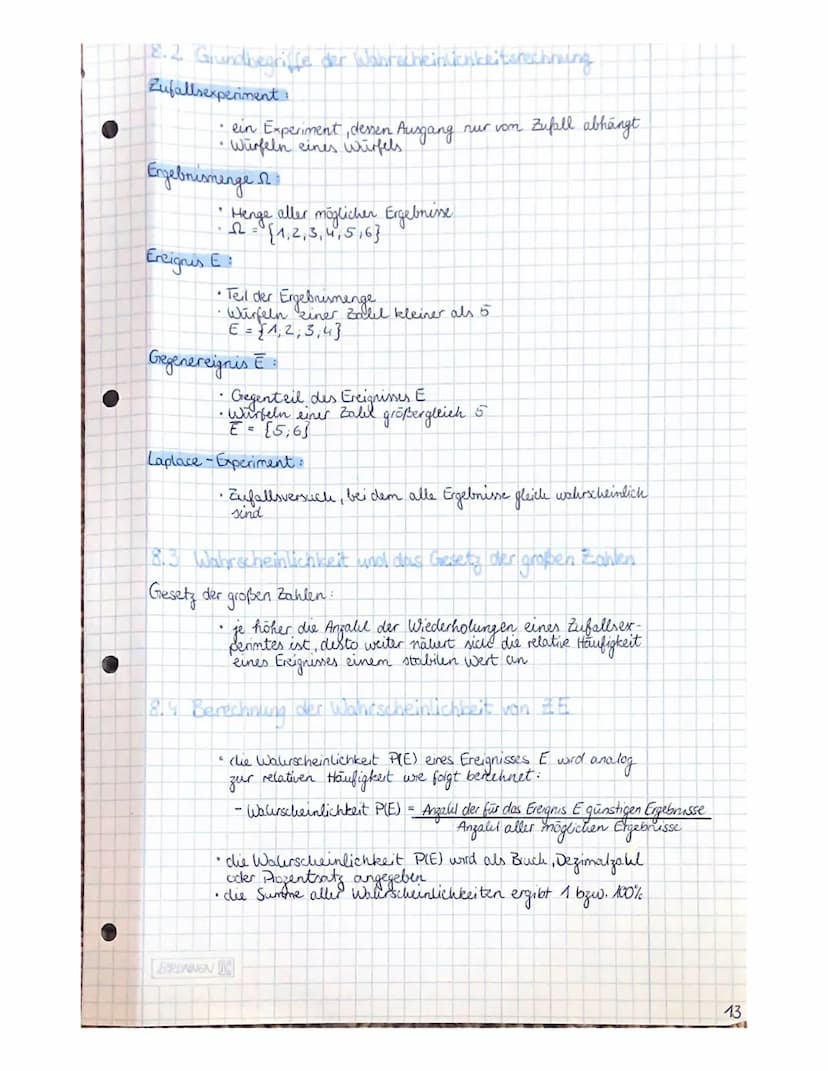 8.2 Grundbegriffe der Wahrscheinlichkeitsrechnung
Zufallsexperiment:
· ein Experiment, dessen Ausgang nur vom Zufall abhängt
· Würfeln eines Würfels
Ergebnismenge Ω:
· Menge aller möglichen Ergebnisse
· Ω = {1,2,3,4,5,6}
Ereignis E:
· Teil der Ergebnismenge
· Würfeln einer Zahl kleiner als 5
E = {1,2,3,4}
Gegenereignis E̅:
· Gegenteil des Ereignisses E
· Würfeln einer Zahl größergleich 5
E̅ = {5,6}
Laplace-Experiment:
· Zufallsversuch, bei dem alle Ergebnisse gleich wahrscheinlich
sind
8.3 Wahrscheinlichkeit und das Gesetz der großen Zahlen
Gesetz der großen Zahlen:
· je höher die Anzahl der Wiederholungen eines Zufallsex-
perimtes ist, desto weiter nähert sich die relative Häufigkeit
eines Ereignisses einem stabilen Wert an
8.4 Berechnung der Wahrscheinlichkeit von ZE
· die Wahrscheinlichkeit P(E) eines Ereignisses E wird analog
zur relativen Häufigkeit wie folgt berechnet:
- Wahrscheinlichkeit P(E) = Anzahl der für das Ereignis E günstigen Ergebnisse
Anzahl aller möglichen Ergebnisse
· die Wahrscheinlichkeit P(E) wird als Buch, Dezimalzahl
oder Prozentsatz angegeben
· die Summe aller Wahrscheinlichkeiten ergibt 1 bzw. 100%
BRUNNEN
13